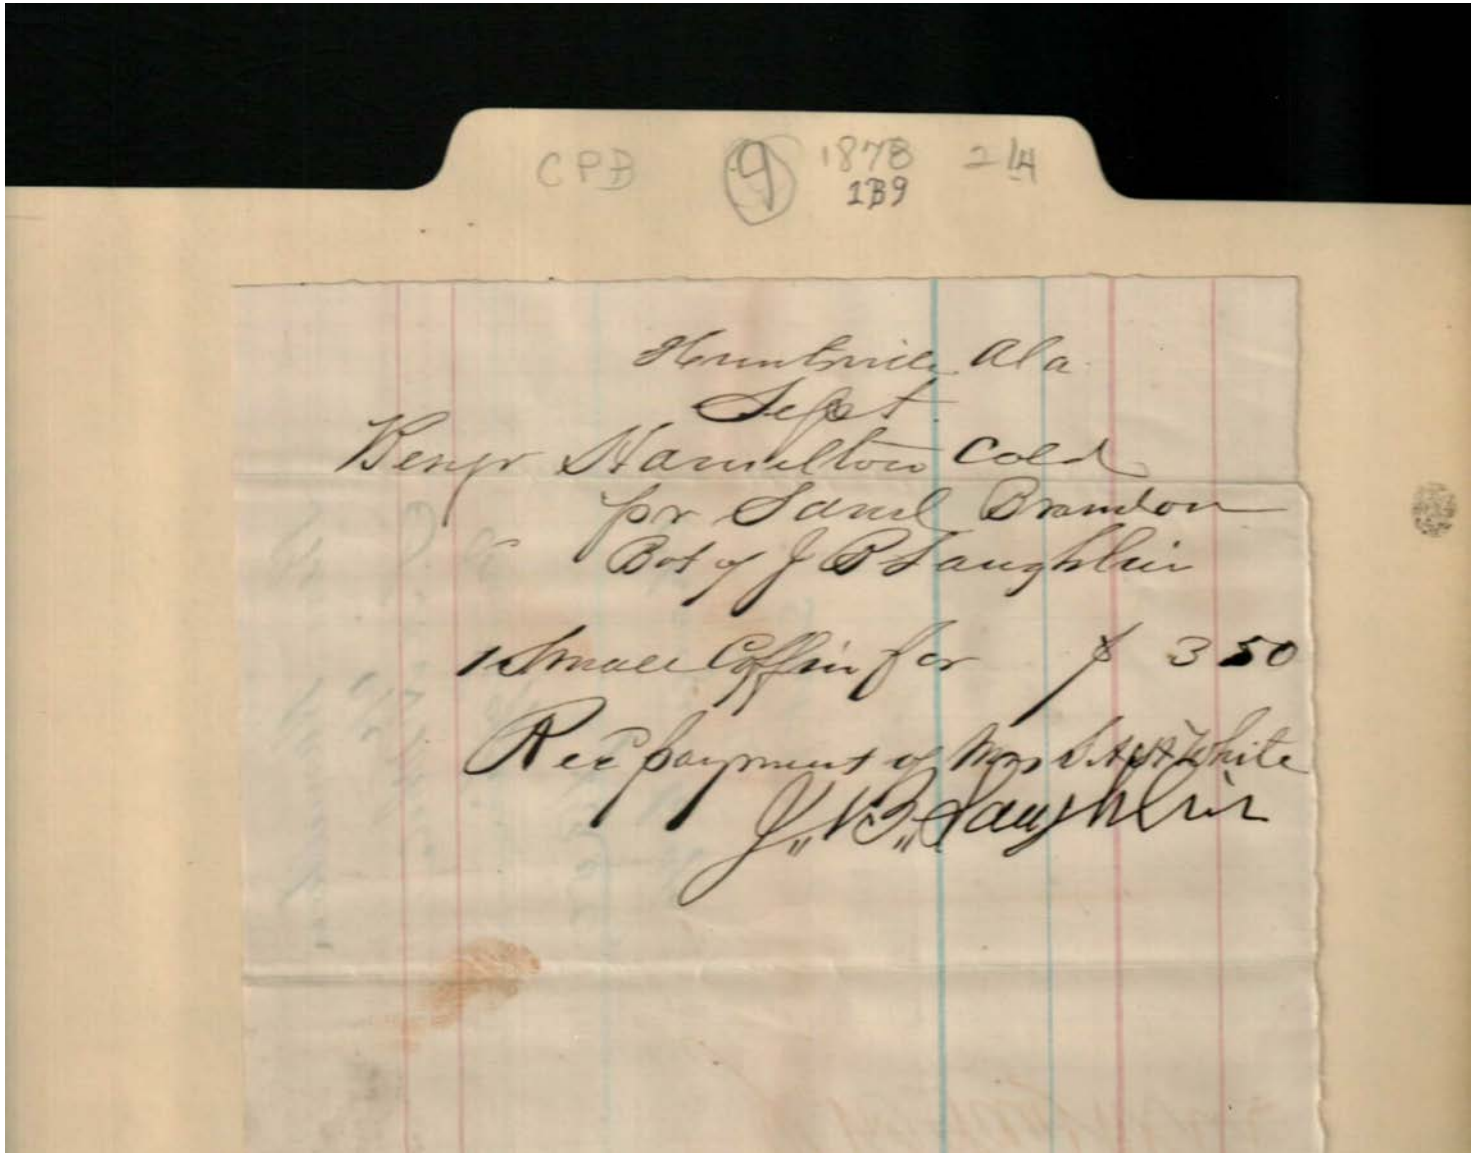 CPB 9 1878 2/4
1B9
Huntsville Ala
Sept.
Benjr Hamilton Cold
pr Saml Brandon
Bot of J B Laughlin
1 Small Coffin for $ 3 50
Rec payment of Mrs S. A. White
J. B. Laughlin